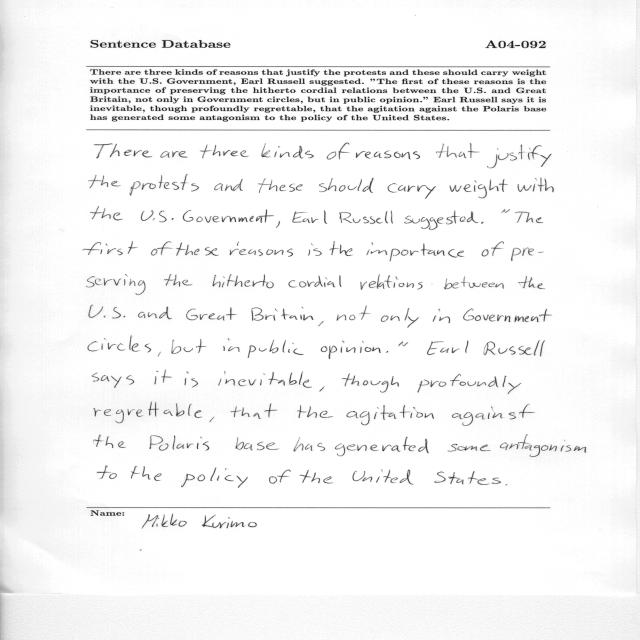 Sentence Database A04-092
There are three kinds of reasons that justify the protests and these should carry weight
with the U.S. Government, Earl Russell suggested. "The first of these reasons is the
importance of preserving the hitherto cordial relations between the U.S. and Great
Britain, not only in Government circles, but in public opinion." Earl Russell says it is
inevitable, though profoundly regrettable, that the agitation against the Polaris base
has generated some antagonism to the policy of the United States.
There are three kinds of reasons that justify
the protests and these should carry weight with
the U.S. Government, Earl Russell suggested. "The
first of these reasons is the importance of pre-
serving the hitherto cordial relations between the
U.S. and Great Britain, not only in Government
circles, but in public opinion." Earl Russell
says it is inevitable, though profoundly
regrettable, that the agitation against
the Polaris base has generated some antagonism
to the policy of the United States.
Name: Mikko Kurimo